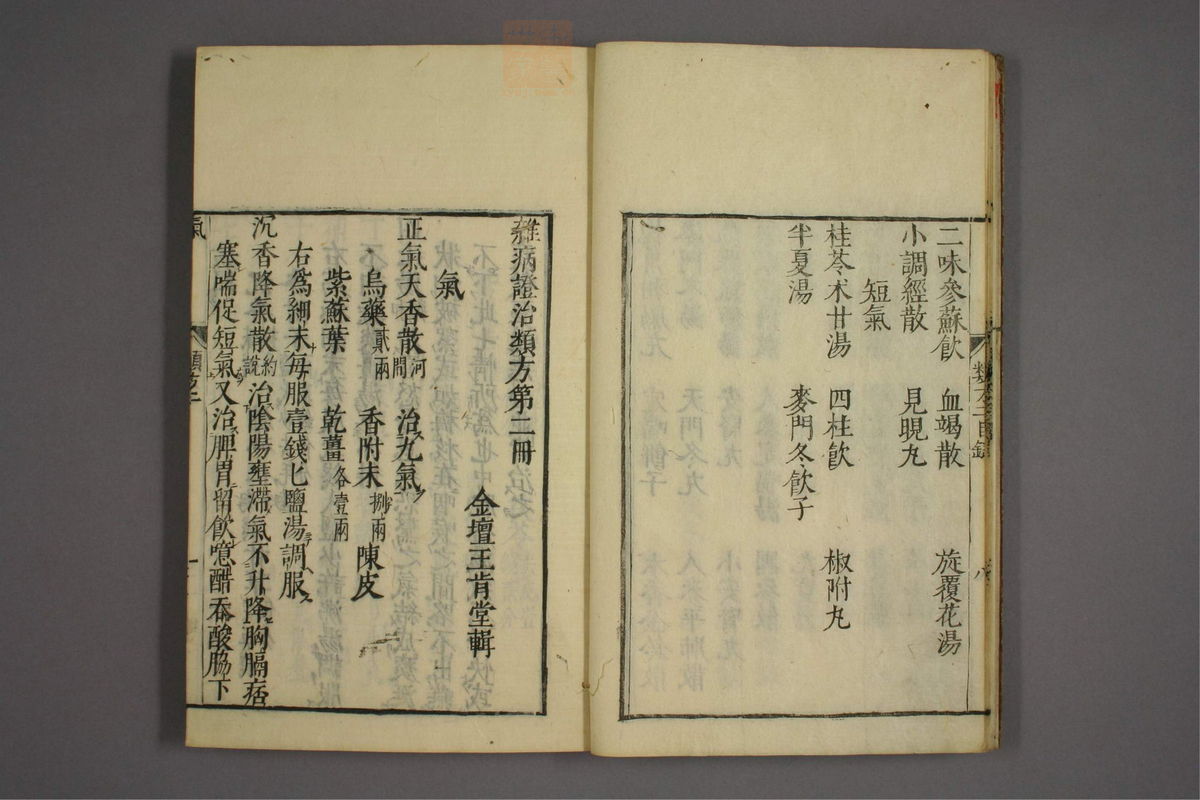 二味參蘇飲 血竭散 旋覆花湯
小調經散 見晛丸
短氣
桂苓朮甘湯 四柱飲 椒附丸
半夏湯 麥門冬飲子
雜病證治類方第二冊
金壇王肯堂輯
氣
正氣天香散河間 治九氣
烏藥貳兩 香附末捌兩 陳皮
紫蘇葉 乾薑各壹兩
右爲細末每服壹錢匕鹽湯調服
沉香降氣散約說 治陰陽壅滯氣不升降胸膈痞
塞喘促短氣又治脾胃留飲噫醋吞酸脇下
氣